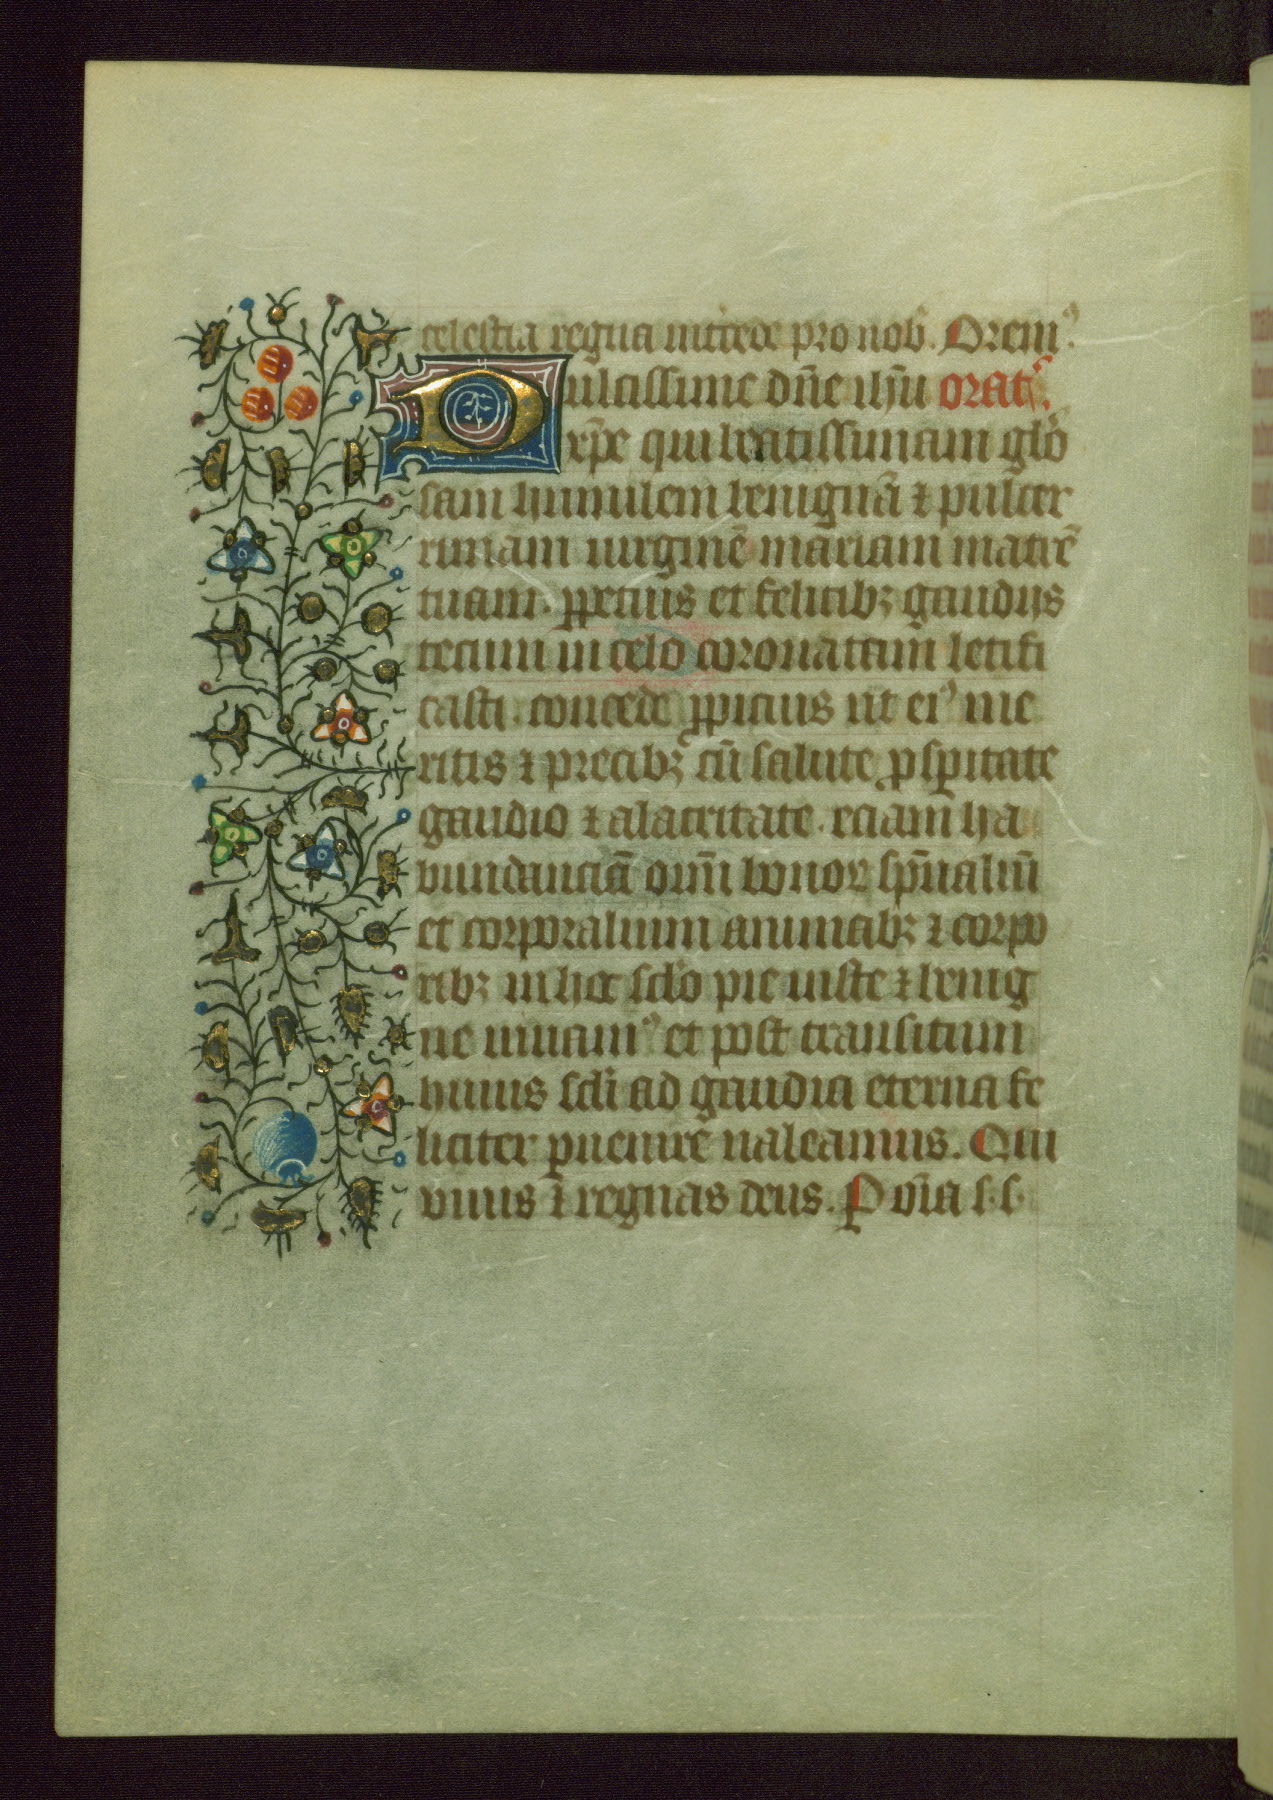 celestia regna intcede pro nob̄. Orem⁹.
Dulcissime dn̄e ih̄u orat̄.
xp̄e qui beatissimam glo
sam humilem benignā ⁊ pulcer
rimam uirginē mariam matrē
tuam. ꝑpetuis et felicibꝫ gaudijs
tecum in celo coronatam letifi
casti. concede ꝓpicius ut ei⁹ me
ritis ⁊ precibꝫ cū salute ꝓsꝑitate
gaudio ⁊ alacritate. eciam ha
bundanciā om̄i bonoꝝ sp̄ualiū
et corporalium animabꝫ ⁊ corpo
ribꝫ in hoc sclo pie iuste ⁊ benig
ne uiuam⁹ et post transitum
huius scli ad gaudia eterna fe
liciter ꝑuenire ualeamus. Qui
viuis ⁊ regnas deus. P om̄ia s. s.